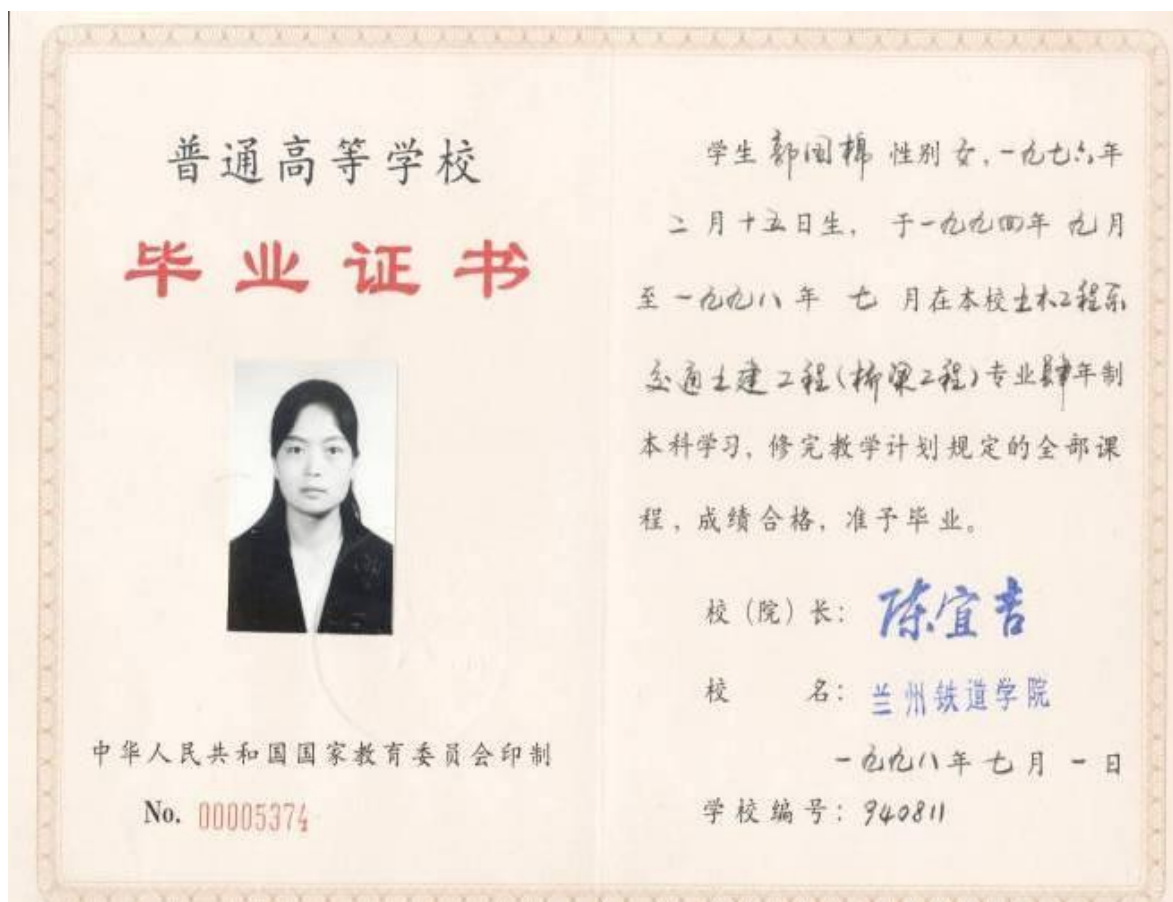 普通高等学校
毕业证书
中华人民共和国国家教育委员会印制
No. 00005374
学生 郭国棉 性别 女,一九七六年
二月十五日生, 于一九九四年 九月
至一九九八年 七 月在本校土木工程系
交通土建工程(桥梁工程)专业肆年制
本科学习, 修完教学计划规定的全部课
程, 成绩合格, 准予毕业。
校(院)长: 陈宜吉
校 名: 兰州铁道学院
一九九八年七月一日
学校编号: 940811